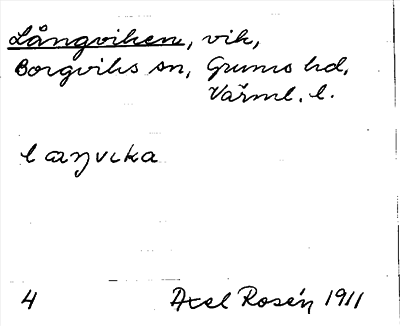 Långviken, vik,
Borgviks sn, Grums hd,
Värml. l.
l aŋvika
4 Axel Rosén 1911